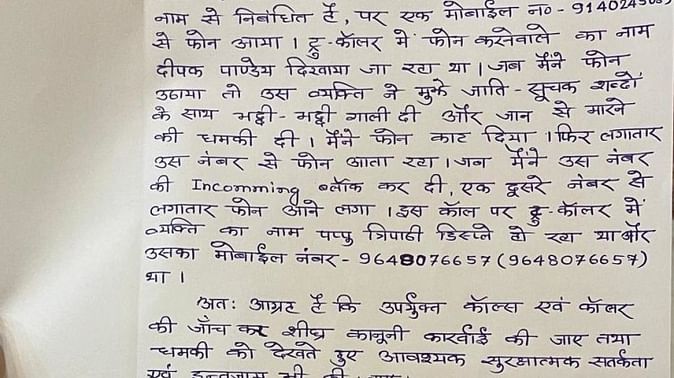 नाम से निबंधित है, पर एक मोबाईल न० - 9140245089
से फोन आया । ट्रु-कॉलर में फोन करनेवाले का नाम
दीपक पाण्डेय दिखाया जा रहा था । जब मैंने फोन
उठाया तो उस व्यक्ति ने मुझे जाति - सूचक शब्दों
के साथ भद्दी - भद्दी गाली दी और जान से मारने
की धमकी दी । मैंने फोन काट दिया । फिर लगातार
उस नंबर से फोन आता रहा । जब मैंने उस नंबर
की Incomming ब्लॉक कर दी, एक दूसरे नंबर से
लगातार फोन आने लगा । इस कॉल पर ट्रु-कॉलर में
व्यक्ति का नाम पप्पु त्रिपाठी डिस्प्ले हो रहा था और
उसका मोबाईल नंबर - 9648076657 (9648076657)
था ।
अत: आग्रह है कि उपर्युक्त कॉल्स एवं कॉलर
की जाँच कर शीघ्र कानूनी कार्रवाई की जाए तथा
धमकी को देखते हुए आवश्यक सुरक्षात्मक सतर्कता
एवं इन्तजाम भी